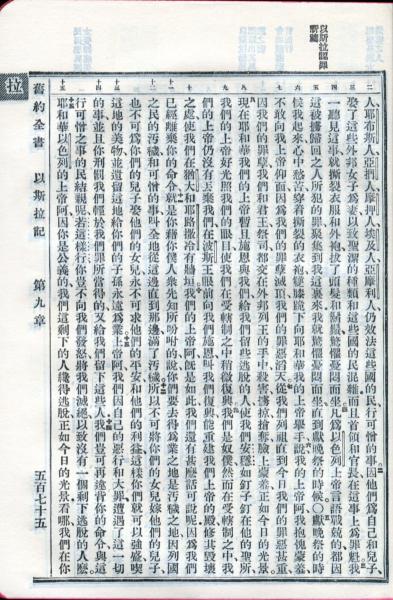 以斯拉認罪
祈禱
人耶布斯人亞捫人摩押人埃及人亞摩利人仍效法這些國的民行可憎的事因他們爲自己和兒子
娶了這些外邦女子爲妻以致聖潔的種類和這些國的民混雜而且首領和官長在這事上爲罪魁我
一聽見這事就撕裂衣服和外袍拔了頭髮和鬍鬚驚懼憂悶而坐凡爲以色列上帝言語戰兢的都因
這被擄歸回之人所犯的罪聚集到我這裏來我就驚懼憂悶而坐直到獻晚祭的時候○獻晚祭的時
候我起來心中愁苦穿着撕裂的衣袍雙膝跪下向耶和華我的上帝舉手說我的上帝阿我抱愧蒙羞
不敢向我上帝仰面因爲我們的罪孽滅頂我們的罪惡滔天從我們列祖直到今日我們的罪惡甚重
因我們的罪孽我們和君王祭司都交在外邦列王的手中殺害擄掠搶奪臉上蒙羞正如今日的光景
現在耶和華我們的上帝暫且施恩與我們給我們留些逃脫的人使我們安穩如釘子釘在他的聖所
我們的上帝好光照我們的眼目使我們在受轄制之中稍微復興我們是奴僕然而在受轄制之中我
們的上帝仍沒有丟棄我們在波斯王眼前向我們施恩叫我們復興能重建我們上帝的殿修其毀壞
之處使我們在猶大和耶路撒冷有牆垣我們的上帝阿旣是如此我們還有甚麽話可說呢因爲我們
已經離棄你的命令就是你藉你僕人衆先知所吩咐的說你們要去得爲業之地是汚穢之地因列國
之民的汚穢和可憎的事叫全地從這邊直到那邊滿了汚穢所以不可將你們的女兒嫁他們的兒子
也不可爲你們的兒子娶他們的女兒永不可求他們的平安和他們的利益這樣你們就可以強盛喫
這地的美物並遺留這地給你們的子孫永遠爲業上帝阿我們因自己的惡行和大罪遭遇了這一切
的事並且你刑罰我們輕於我們罪所當得的又給我們留下這些人我們豈可再違背你的命令與這
行可憎之事的民結親呢若這樣行你豈不向我們發怒將我們滅絕以致沒有一個剩下逃脫的人麽
耶和華以色列的上帝阿因你是公義的我們這剩下的人纔得逃脫正如今日的光景看哪我們在你
拉
舊約全書 以斯拉記 第九章 五百七十五